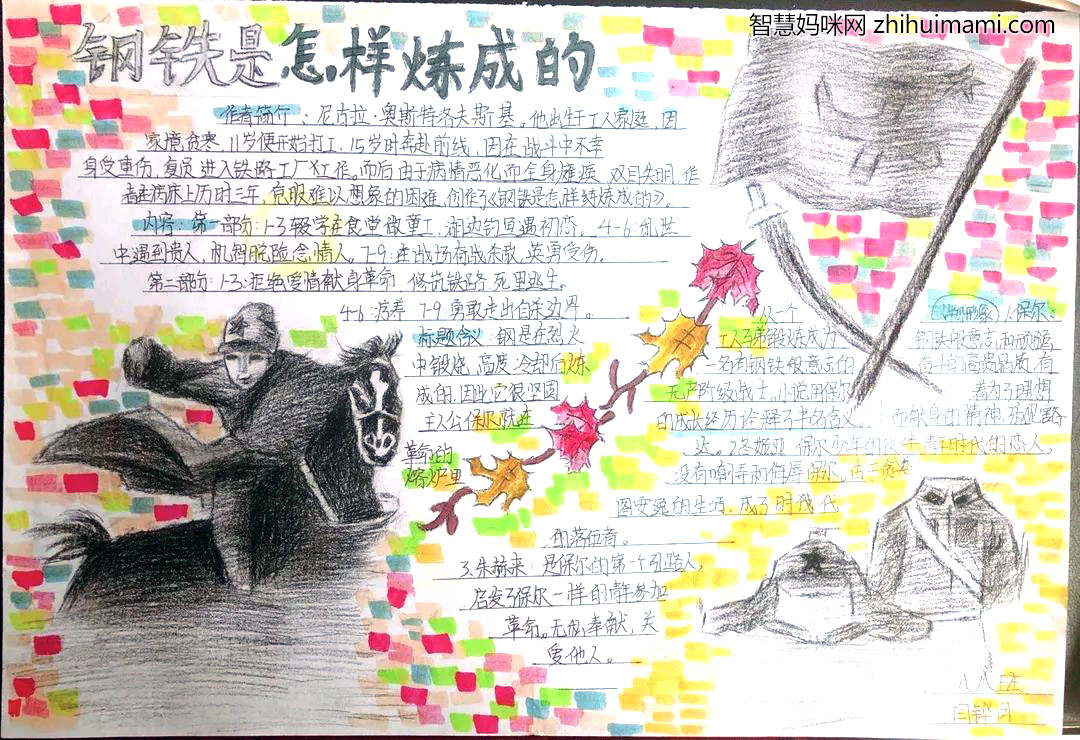 智慧妈咪网 zhihuimami.com
钢铁是怎样炼成的
作者简介：尼古拉·奥斯特洛夫斯基。他出生于工人家庭，因
家境贫寒，11岁便开始打工，15岁时奔赴前线，因在战斗中不幸
身受重伤，复员进入铁路工厂工作。而后由于病情恶化而全身瘫痪，双目失明，作
者在病床上历时三年，克服难以想象的困难，创作了《钢铁是怎样练炼成的》。
内容：第一部份：1-3辍学在食堂做童工，湖边钓鱼遇初恋。4-6：乱世
中遇到贵人，机智脱险念情人。7-9：在战场奋战杀敌，英勇受伤。
第二部份：1-3：拒绝爱情献身革命，修筑铁路死里逃生。
4-6：疗养 7-9 勇敢走出自杀边界。
标题含义：钢是在烈火
中锻烧，高度冷却后炼
成的，因此它很坚固
主人公保尔就在
革命的
熔炉里
从一个
工人子弟锻炼成为
一名有钢铁般意志的
无产阶级战士，小说用保尔
的成长经历诠释了书名含义。
1.保尔：
钢铁般意志，和顽强
奋斗的高贵品质，有
着为了理想
而献身的精神，
达。2.冬妮亚 保尔少年的伙伴 青年时代的恋人，
没有嘲弄和侮辱保尔。由于贪
图安逸的生活，成了时代
的落伍者。
3.朱赫来：是保尔的第一个引路人，
启发了保尔一样的青参加
革命。无私奉献，关
爱他人。
八八班
闫铧月